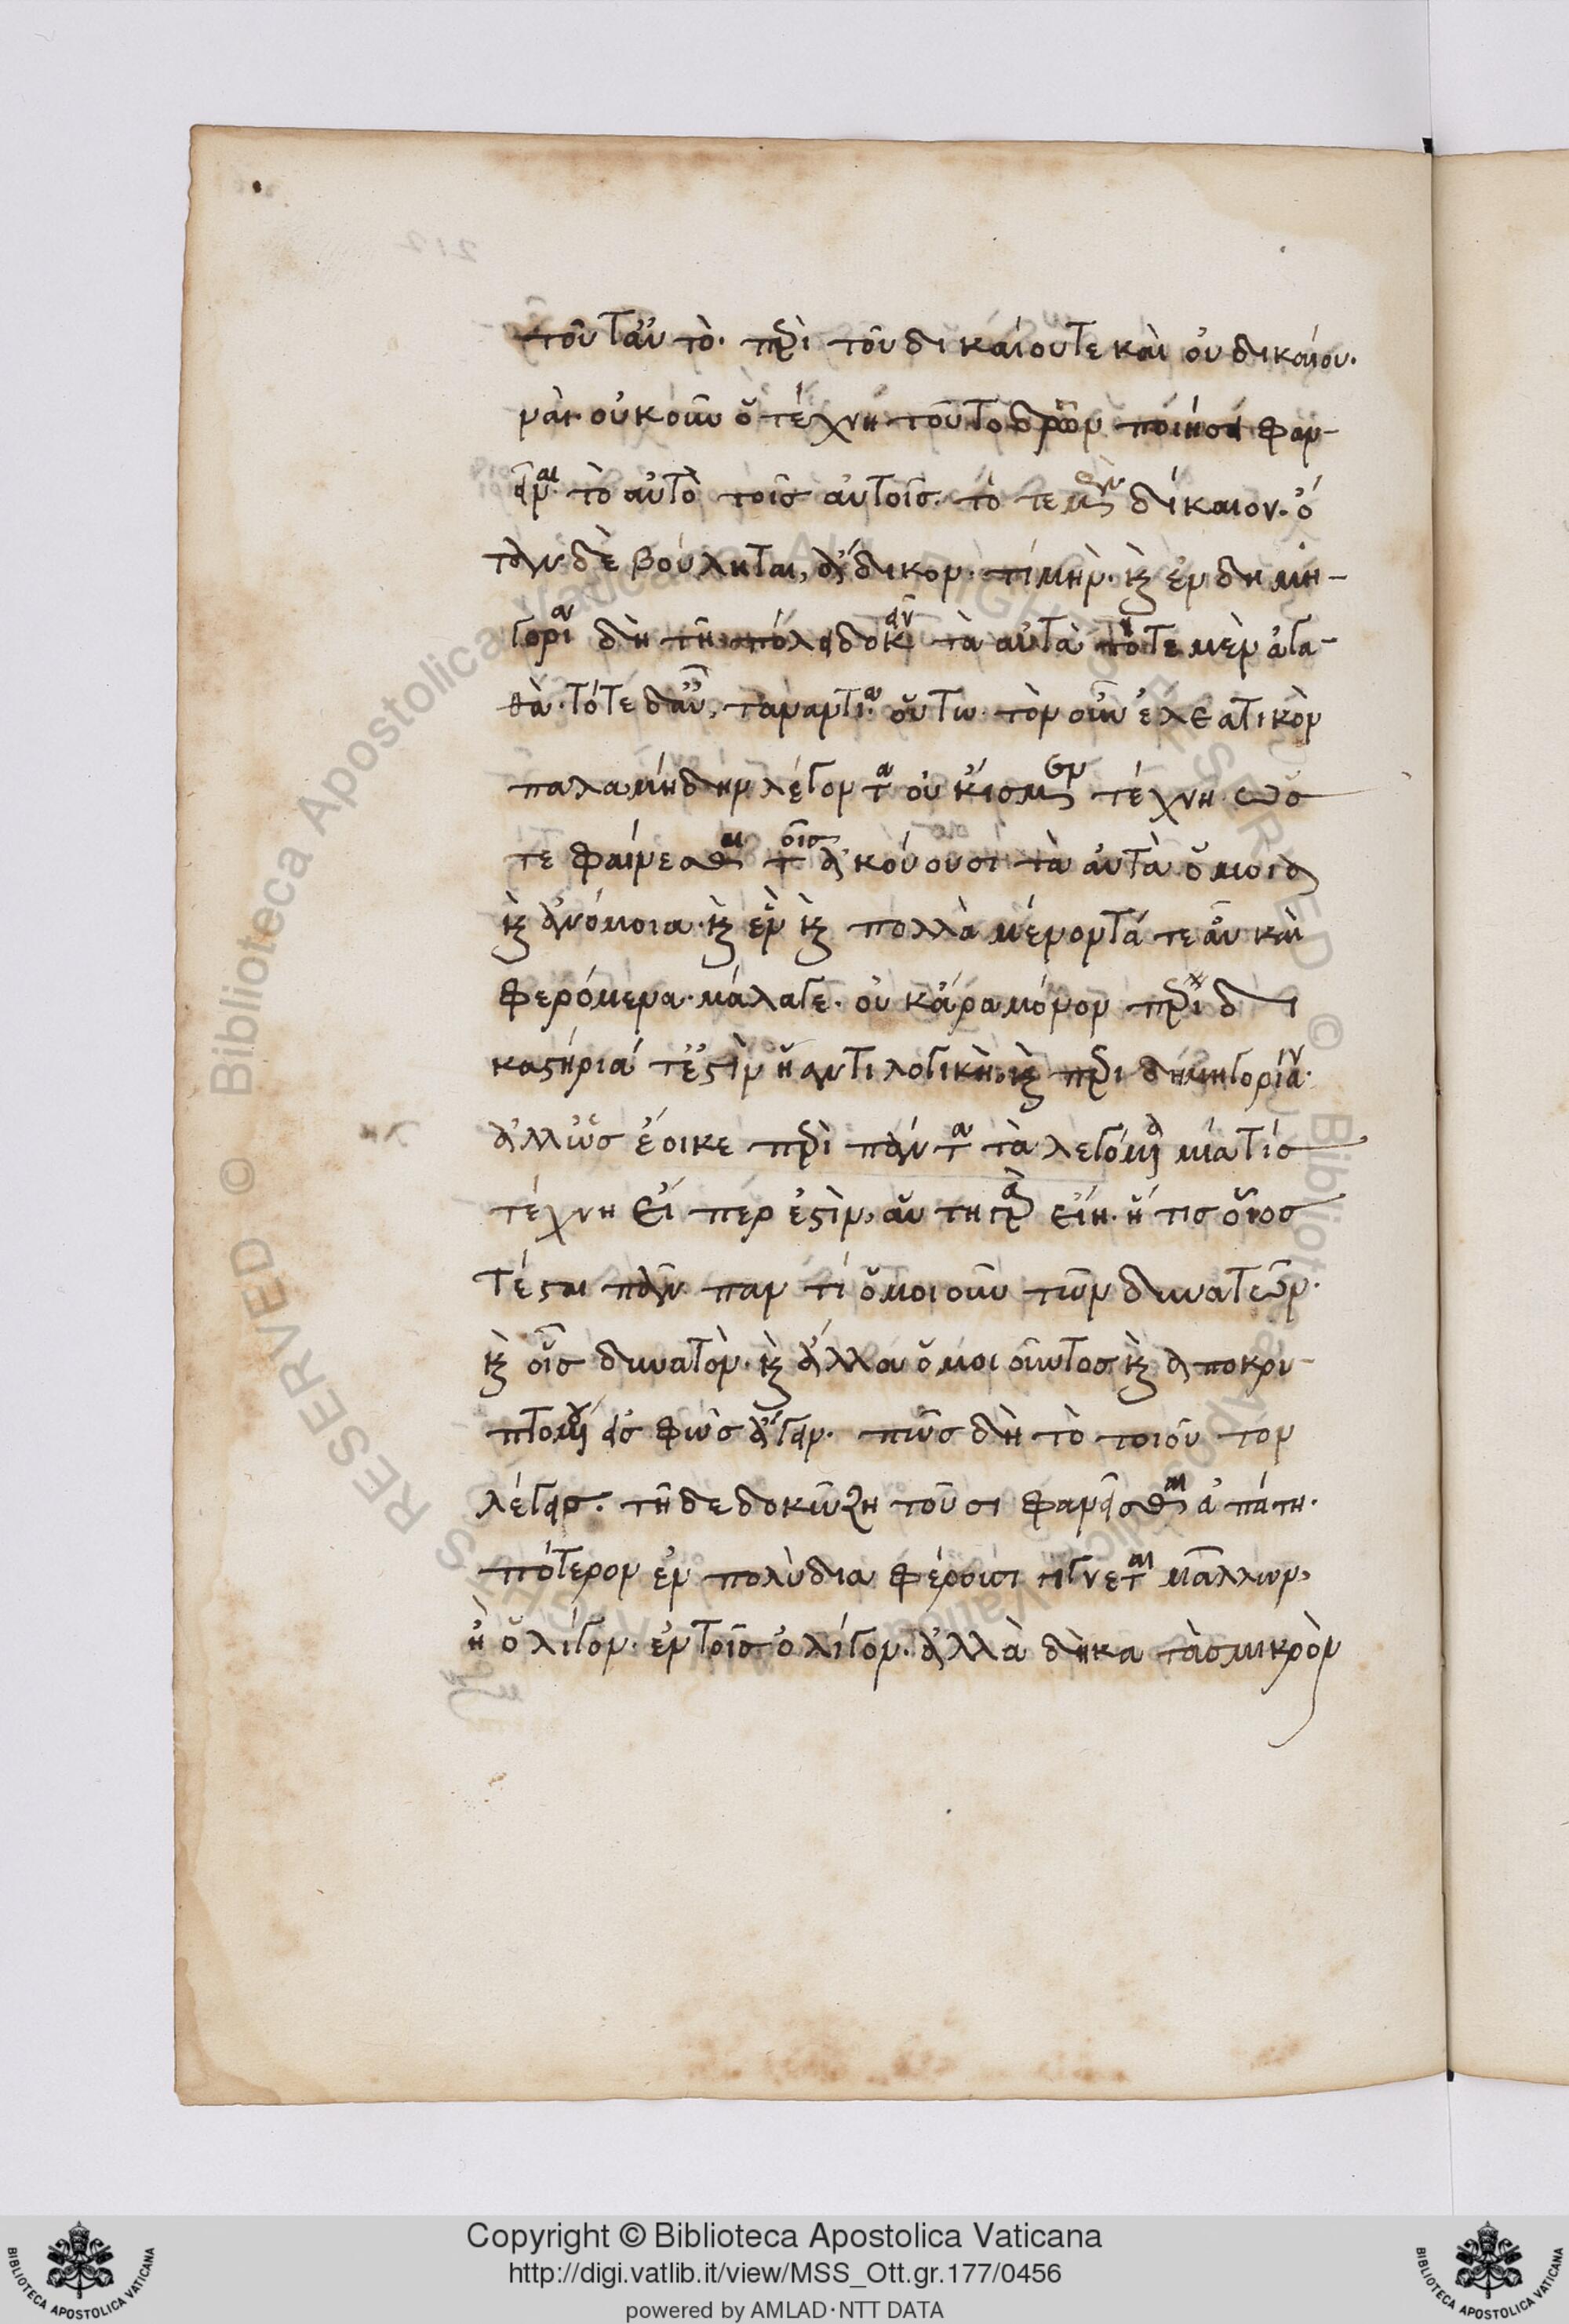 τοῦταὐτὸ. περὶ τοῦ δικαίουτε καὶ οὐ δικαίου.
ναὶ. οὐκοῦν ὁ τέχνη τοῦτο δρῶν ποιήσει φαν-
εῖναι. τὸ αὐτὸ τοῖς αὐτοῖς. τὸ τε μὲν δίκαιον. ὅ
τἂν δὲ βούληται, ἄδικον. τί μὴν. καὶ ἐν δημη-
γορίαν δὴ τῇ πόλει δοκεῖν τὰ αὐτὰ τότε μὲν ἀγα-
θὰ. τότε δ' αὖ, τἀναντία. οὕτω. τὸν οὖν ἐλεατικὸν
παλαμήδην λέγοντα οὐκ ἴσμεν τέχνη ὡς
τε φαίνεσθαι τοῖς ἀκούουσι τὰ αὐτὰ ὅμοια
καὶ ἀνόμοια. καὶ ἓν καὶ πολλὰ μένοντά τε αὖ καὶ
φερόμενα. μάλαγε. οὐκ ἄρα μόνον περὶ δι
καστήριά τέ ἐστιν ἡ ἀντιλογικὴ. καὶ περὶ δημηγορίαν.
ἀλλ' ὡς ἔοικε περὶ πάντα τὰ λεγόμενα μία τίς
τέχνη εἴ περ ἐστὶν, αὕτη ἂν εἴη. ᾗ τις οἷος
τέσται πᾶν παν τὶ ὁμοιοῦν τῶν δυνατῶν.
καὶ οἷς δυνατὸν. καὶ ἄλλου ὁμοιοῦντος καὶ ἀποκρυ-
πτομένου εἰς φῶς ἄγειν. πῶς δὴ τὸ τοιοῦτον
λέγεις. τῇδε δοκῶ ζητοῦσι φανεῖσθαι ἀπάτη.
πότερον ἐν πολὺ διαφέρουσι γίγνεται μᾶλλον,
ἢ ὀλίγον. ἐν τοῖς ὀλίγον. ἀλλὰ δὴ κατὰ σμικρὸν
Copyright © Biblioteca Apostolica Vaticana
http://digi.vatlib.it/view/MSS_Ott.gr.177/0456
powered by AMLAD·NTT DATA